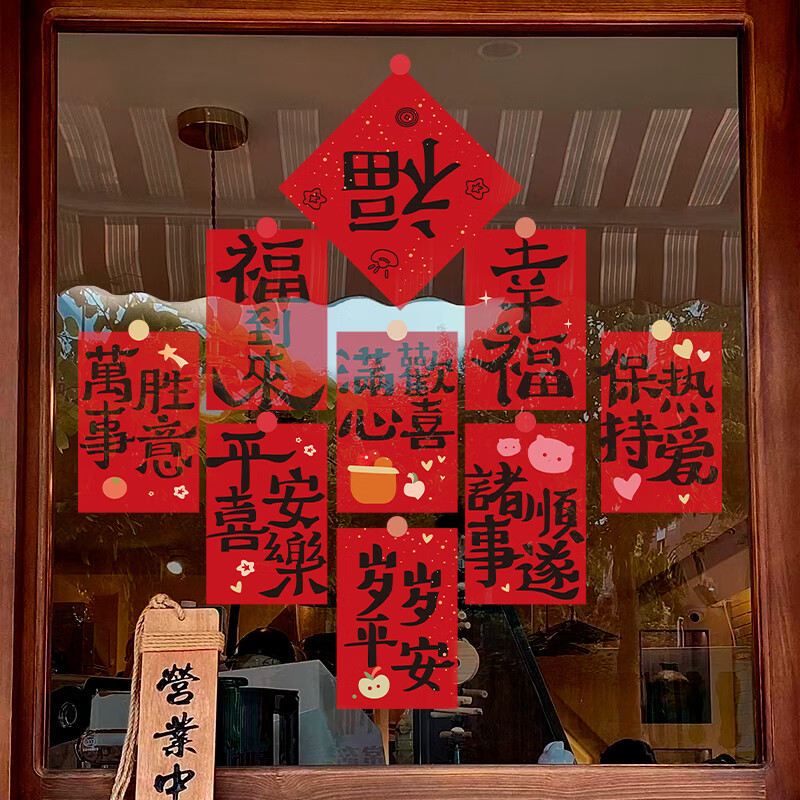 福
福到來
幸福
萬事胜意
滿心歡喜
保持热爱
平安喜樂
諸事順遂
岁岁平安
營業中